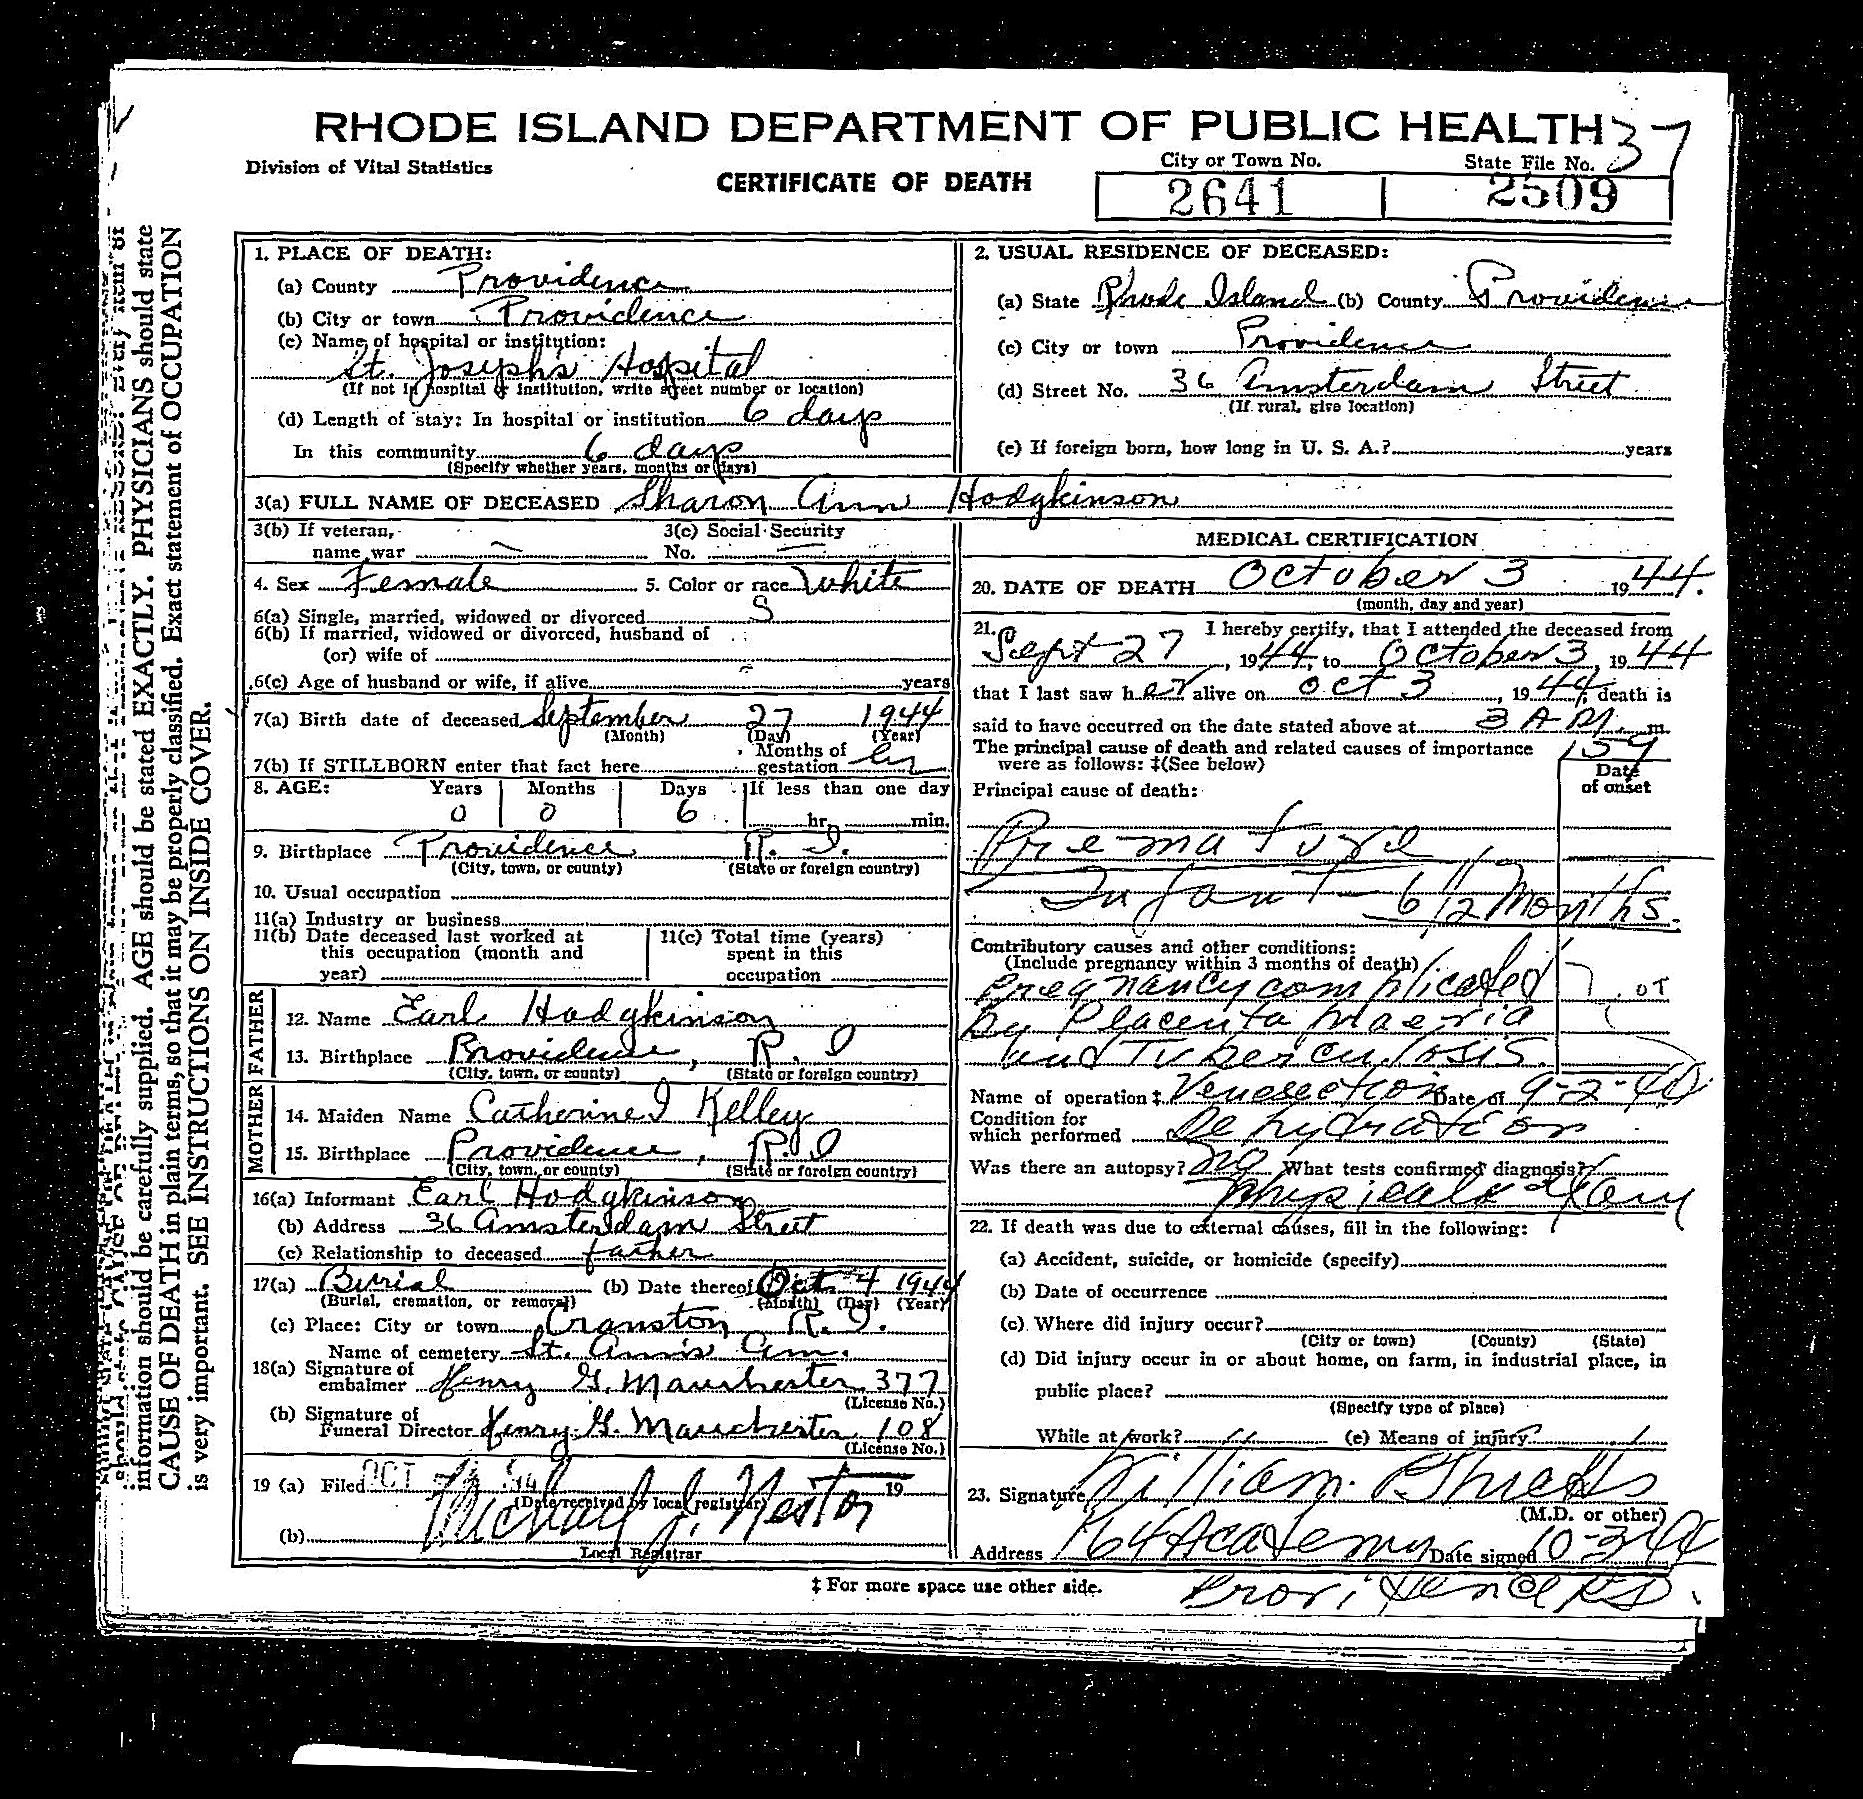 RHODE ISLAND DEPARTMENT OF PUBLIC HEALTH 37
Division of Vital Statistics
CERTIFICATE OF DEATH
City or Town No. State File No.
2641 2509
information should be carefully supplied. AGE should be stated EXACTLY. PHYSICIANS should state
CAUSE OF DEATH in plain terms, so that it may be properly classified. Exact statement of OCCUPATION
is very important. SEE INSTRUCTIONS ON INSIDE COVER.
1. PLACE OF DEATH:
(a) County Providence
(b) City or town Providence
(c) Name of hospital or institution:
St. Joseph's Hospital
(If not in hospital or institution, write street number or location)
(d) Length of stay: In hospital or institution 6 days
In this community 6 days
(Specify whether years, months or days)
2. USUAL RESIDENCE OF DECEASED:
(a) State Rhode Island (b) County Providence
(c) City or town Providence
(d) Street No. 36 Amsterdam Street
(If rural, give location)
(e) If foreign born, how long in U. S. A.? years
3(a) FULL NAME OF DECEASED Sharon Ann Hodgkinson
3(b) If veteran, 3(c) Social Security
name war — No. —
4. Sex Female 5. Color or race White
6(a) Single, married, widowed or divorced S
6(b) If married, widowed or divorced, husband of
(or) wife of
6(c) Age of husband or wife, if alive years
7(a) Birth date of deceased September 27 1944
(Month) (Day) (Year)
7(b) If STILLBORN enter that fact here Months of gestation
8. AGE: Years Months Days If less than one day
0 0 6 hr. min.
9. Birthplace Providence R. I.
(City, town, or county) (State or foreign country)
10. Usual occupation
11(a) Industry or business
11(b) Date deceased last worked at this occupation (month and year)
11(c) Total time (years) spent in this occupation
FATHER
12. Name Earl Hodgkinson
13. Birthplace Providence, R. I
(City, town, or county) (State or foreign country)
MOTHER
14. Maiden Name Catherine I Kelley
15. Birthplace Providence, R. I
(City, town, or county) (State or foreign country)
16(a) Informant Earl Hodgkinson
(b) Address 36 Amsterdam Street
(c) Relationship to deceased father
17(a) Burial (b) Date thereof Oct. 4 1944
(Burial, cremation, or removal) (Month) (Day) (Year)
(c) Place: City or town Cranston R. I.
Name of cemetery St. Ann's Cem.
18(a) Signature of embalmer Henry G. Manchester 377
(License No.)
(b) Signature of Funeral Director Henry G. Manchester 108
(License No.)
19 (a) Filed OCT 19
(Date received by local registrar)
(b) Michael J. Nestor
Local Registrar
MEDICAL CERTIFICATION
20. DATE OF DEATH October 3 1944.
(month, day and year)
21. I hereby certify, that I attended the deceased from
Sept 27, 1944, to October 3, 1944
that I last saw her alive on Oct 3, 1944, death is
said to have occurred on the date stated above at 3 A M. m.
The principal cause of death and related causes of importance
were as follows: ‡(See below)
159
Date of onset
Principal cause of death:
Premature
Infant - 6 1/2 Months.
Contributory causes and other conditions:
(Include pregnancy within 3 months of death)
Pregnancy complicated
by Placenta Praevia
and Tuberculosis.
Name of operation ‡ Venesection Date of
Condition for which performed Dehydration
Was there an autopsy? no What tests confirmed diagnosis?
Physical Exam
22. If death was due to external causes, fill in the following:
(a) Accident, suicide, or homicide (specify)
(b) Date of occurrence
(c) Where did injury occur?
(City or town) (County) (State)
(d) Did injury occur in or about home, on farm, in industrial place, in
public place?
(Specify type of place)
While at work? (e) Means of injury
23. Signature William
(M.D. or other)
Address 164 Academy Date signed 10-3-44
Providence RI.
‡ For more space use other side.